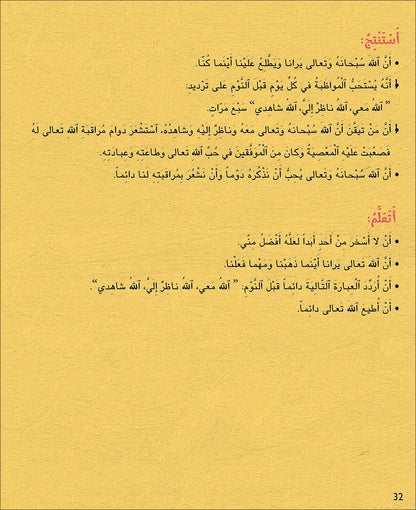 أَسْتَنْتِجُ:
• أَنَّ ٱللهَ سُبْحَانَهُ وَتعالى يَرانا وَيَطَّلِعُ عَلَيْنا أَيْنَما كُنَّا.
• أَنَّهُ يُسْتَحَبُّ ٱلْمُواظَبَةُ في كُلِّ يَوْمٍ قَبْلَ ٱلنَّوْمِ على تَرْديد:
” ٱللهُ مَعي، ٱللهُ ناظرٌ إليَّ، ٱللهُ شاهدي“ سَبْعَ مَرّاتٍ.
• أَنَّ مَنْ تيقّنَ أَنَّ ٱللهَ سُبْحانَهُ وَتَعالى مَعَهُ وَناظِرٌ إِلَيْهِ وشاهدُهُ، ٱسْتَشْعَرَ دَوامَ مُراقَبَةِ ٱللهِ تعالى لَهُ
فَصَعُبَتْ عليْهِ ٱلْمَعْصِيَةُ وَكانَ مِنَ ٱلْمُوَفَّقينَ في حُبِّ ٱللهِ تعالى وَطاعتِهِ وعِبادتِهِ.
• أَنَّ ٱللهَ سُبْحانَهُ وَتعالى يُحبُّ أَنْ نَذْكُرَهُ دَوْماً وَأَنْ نَشْعُرَ بِمُراقبتِهِ لنا دائماً.
أَتَعَلَّمُ:
• أَنْ لا أَسْخَرَ مِنْ أَحَدٍ أَبَداً لَعَلَّهُ أَفْضَلُ مِنّي.
• أَنَّ ٱللهَ تعالى يَرانا أَيْنَما ذَهَبْنا وَمَهْما فَعَلْنا.
• أَنْ أُرَدِّدَ ٱلْعِبارَةَ ٱلتَّالِيةَ دائماً قَبْلَ ٱلنَّوْمِ: ” ٱللهُ مَعي، ٱللهُ ناظرٌ إِليَّ، ٱللهُ شاهدي“.
• أَنْ أُطيعَ ٱللهَ تعالى دائماً.
32